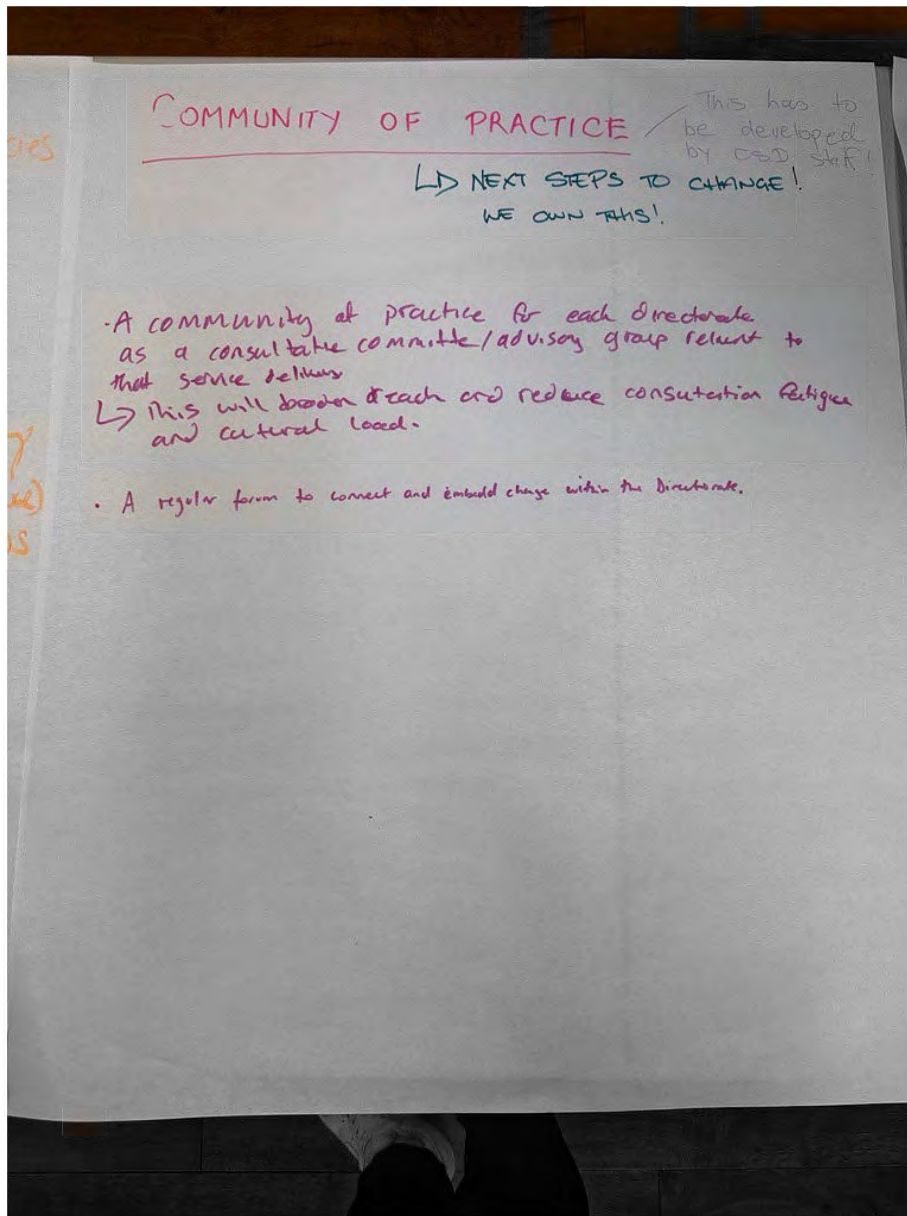 COMMUNITY OF PRACTICE
This has to
be developed
by CSD staff!
↳ NEXT STEPS TO CHANGE!
WE OWN THIS!
· A community of practice for each directorate
as a consultative committe/advisory group relevant to
that service delivery
↳ This will broaden reach and reduce consultation fatigue
and cultural load.
· A regular forum to connect and embedd change within the Directorate.